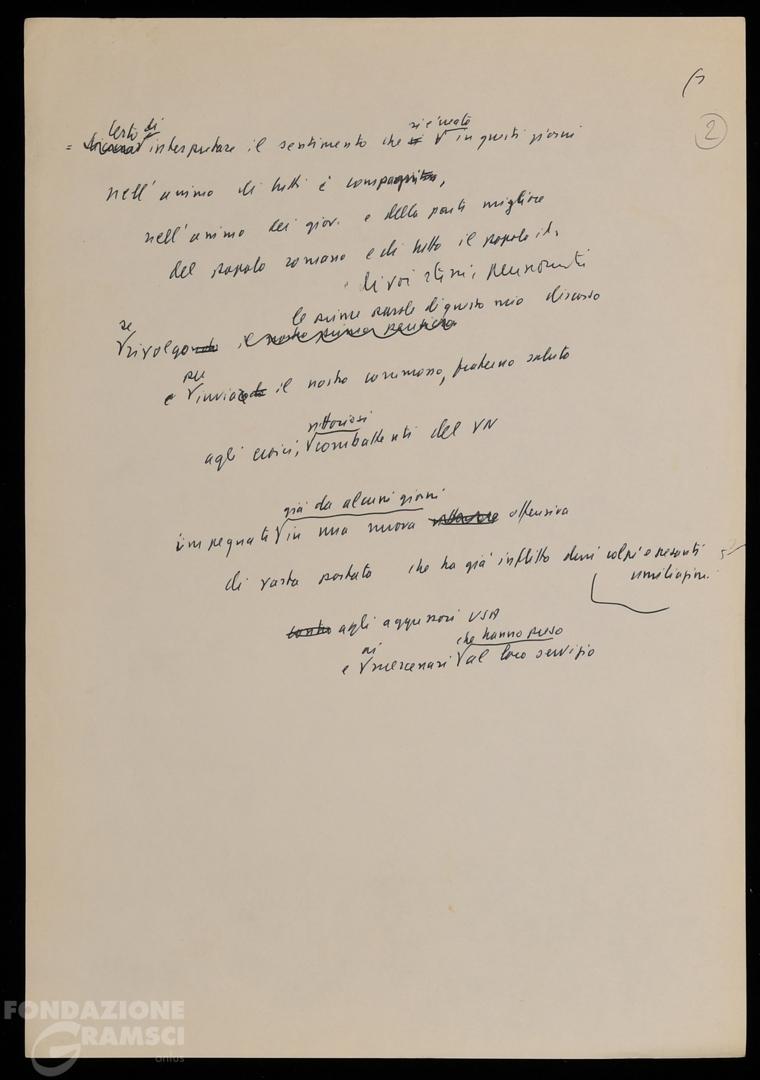 2
certo di si è creato
= interpretare il sentimento che in questi giorni
nell'animo di tutti i compagni,
nell'animo dei giov. e della parte migliore
del popolo romano e di tutto il popolo it.
di voi stessi,
le prime parole di questo mio discorso
se
rivolgo il nostro primo pensiero
per
e invia il nostro commosso, fraterno saluto
vittoriosi
agli eroici, combattenti del VN
già da alcuni giorni
impegnati in una nuova offensiva
di vasta portata che ha già inflitto duri colpi e pesanti
umiliazioni
contro agli aggressori USA
ai che hanno preso
e mercenari al loro servizio
FONDAZIONE
GRAMSCI
onlus